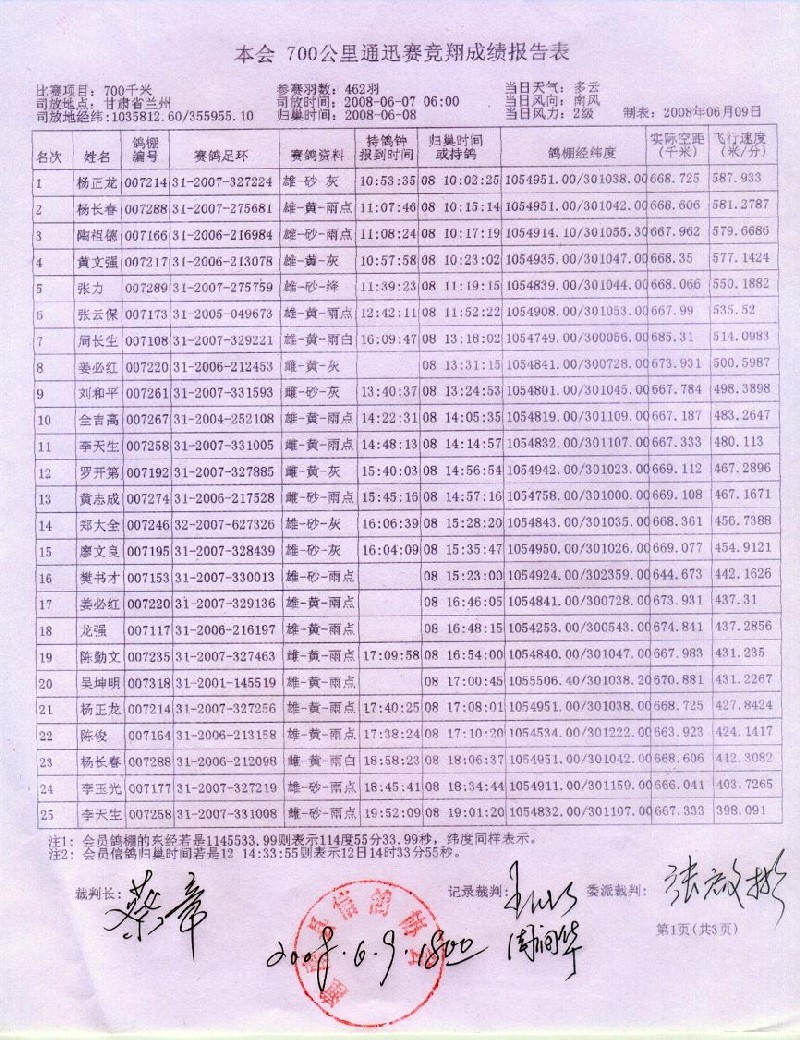 本会 700公里通迅赛竞翔成绩报告表
比赛项目: 700千米 参赛羽数: 462羽 当日天气: 多云
司放地点: 甘肃省兰州 司放时间: 2008-06-07 06:00 当日风向: 南风
司放地经纬:1035812.60/355955.10 归巢时间: 2008-06-08 当日风力: 2级 制表: 2008年06月09日
名次 姓名 鸽棚编号 赛鸽足环 赛鸽资料 持鸽钟报到时间 归巢时间或持鸽 鸽棚经纬度 实际空距(千米) 飞行速度(米/分)
1 杨正龙 007214 31-2007-327224 雄-砂-灰 10:53:35 08 10:02:25 1054951.00/301038.00 668.725 587.933
2 杨长春 007288 31-2007-275681 雄-黄-雨点 11:07:46 08 10:15:14 1054951.00/301042.00 668.606 581.2787
3 陶祖德 007166 31-2006-216984 雄-砂-雨点 11:08:24 08 10:17:19 1054914.10/301055.30 667.962 579.6686
4 黄文强 007217 31-2006-213078 雄-黄-灰 10:57:58 08 10:23:02 1054935.00/301047.00 668.35 577.1424
5 张力 007289 31-2007-275759 雄-砂-绛 11:39:23 08 11:19:15 1054839.00/301044.00 668.066 550.1882
6 张云保 007173 31-2005-049673 雄-黄-雨点 12:42:11 08 11:52:22 1054908.00/301053.00 667.99 535.52
7 周长生 007108 31-2007-329221 雄-黄-雨白 16:09:47 08 13:18:02 1054749.00/300056.00 685.31 514.0983
8 姜必红 007220 31-2006-212453 雌-黄-灰 08 13:31:15 1054841.00/300728.00 673.931 500.5987
9 刘和平 007261 31-2007-331593 雌-砂-灰 13:40:37 08 13:24:53 1054801.00/301045.00 667.784 498.3898
10 全吉高 007267 31-2004-252108 雄-黄-雨点 14:22:31 08 14:05:35 1054819.00/301109.00 667.187 483.2647
11 李天生 007258 31-2007-331005 雌-黄-雨点 14:48:13 08 14:14:57 1054832.00/301107.00 667.333 480.113
12 罗开第 007192 31-2007-327885 雌-黄-灰 15:40:03 08 14:56:54 1054942.00/301023.00 669.112 467.2896
13 黄志成 007274 31-2006-217528 雌-砂-雨点 15:45:16 08 14:57:16 1054758.00/301000.00 669.108 467.1671
14 郑大全 007246 32-2007-627326 雄-砂-灰 16:06:39 08 15:28:20 1054843.00/301035.00 668.361 456.7388
15 廖文良 007195 31-2007-328439 雄-砂-灰 16:04:09 08 15:35:47 1054950.00/301026.00 669.077 454.9121
16 樊书才 007153 31-2007-330013 雄-砂-雨点 08 15:23:00 1054924.00/302359.00 644.673 442.1626
17 姜必红 007220 31-2007-329136 雄-黄-雨点 08 16:46:05 1054841.00/300728.00 673.931 437.31
18 龙强 007117 31-2006-216197 雄-黄-雨点 08 16:48:15 1054253.00/300543.00 674.841 437.2856
19 陈勤文 007235 31-2007-327463 雄-黄-雨点 17:09:58 08 16:54:00 1054840.00/301047.00 667.983 431.235
20 吴坤明 007318 31-2001-145519 雌-黄-雨点 08 17:00:45 1055506.40/301038.20 670.881 431.2267
21 杨正龙 007214 31-2007-327256 雄-黄-雨点 17:40:25 08 17:08:01 1054951.00/301038.00 668.725 427.8424
22 陈俊 007164 31-2006-213158 雄-黄-雨点 17:38:24 08 17:10:20 1054534.00/301222.00 663.923 424.1417
23 杨长春 007288 31-2006-212098 雌-黄-雨白 18:58:23 08 18:06:37 1054951.00/301042.00 668.606 412.3082
24 李玉光 007177 31-2007-327219 雄-砂-雨点 18:45:41 08 18:34:44 1054911.00/301159.00 666.041 403.7265
25 李天生 007258 31-2007-331008 雄-砂-雨点 19:52:09 08 19:01:20 1054832.00/301107.00 667.333 398.091
注1: 会员鸽棚的东经若是1145533.99则表示114度55分33.99秒，纬度同样表示。
注2: 会员信鸽归巢时间若是12 14:33:55则表示12日14时33分55秒。
裁判长: 蔡章 记录裁判: 周润华 委派裁判:
第1页(共3页)
2008.6.9.1800
信鸽协会